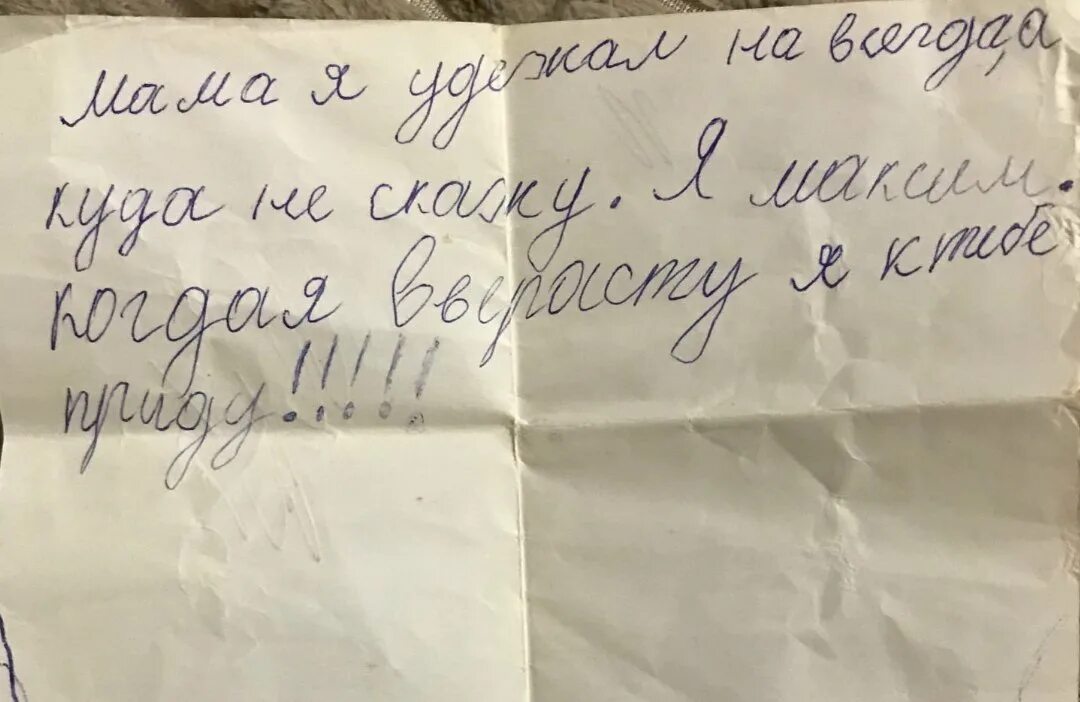 Мама я удежал на всегда, а
куда не скажу. Я максим.
когдая вырасту я к тибе
приду!!!!!